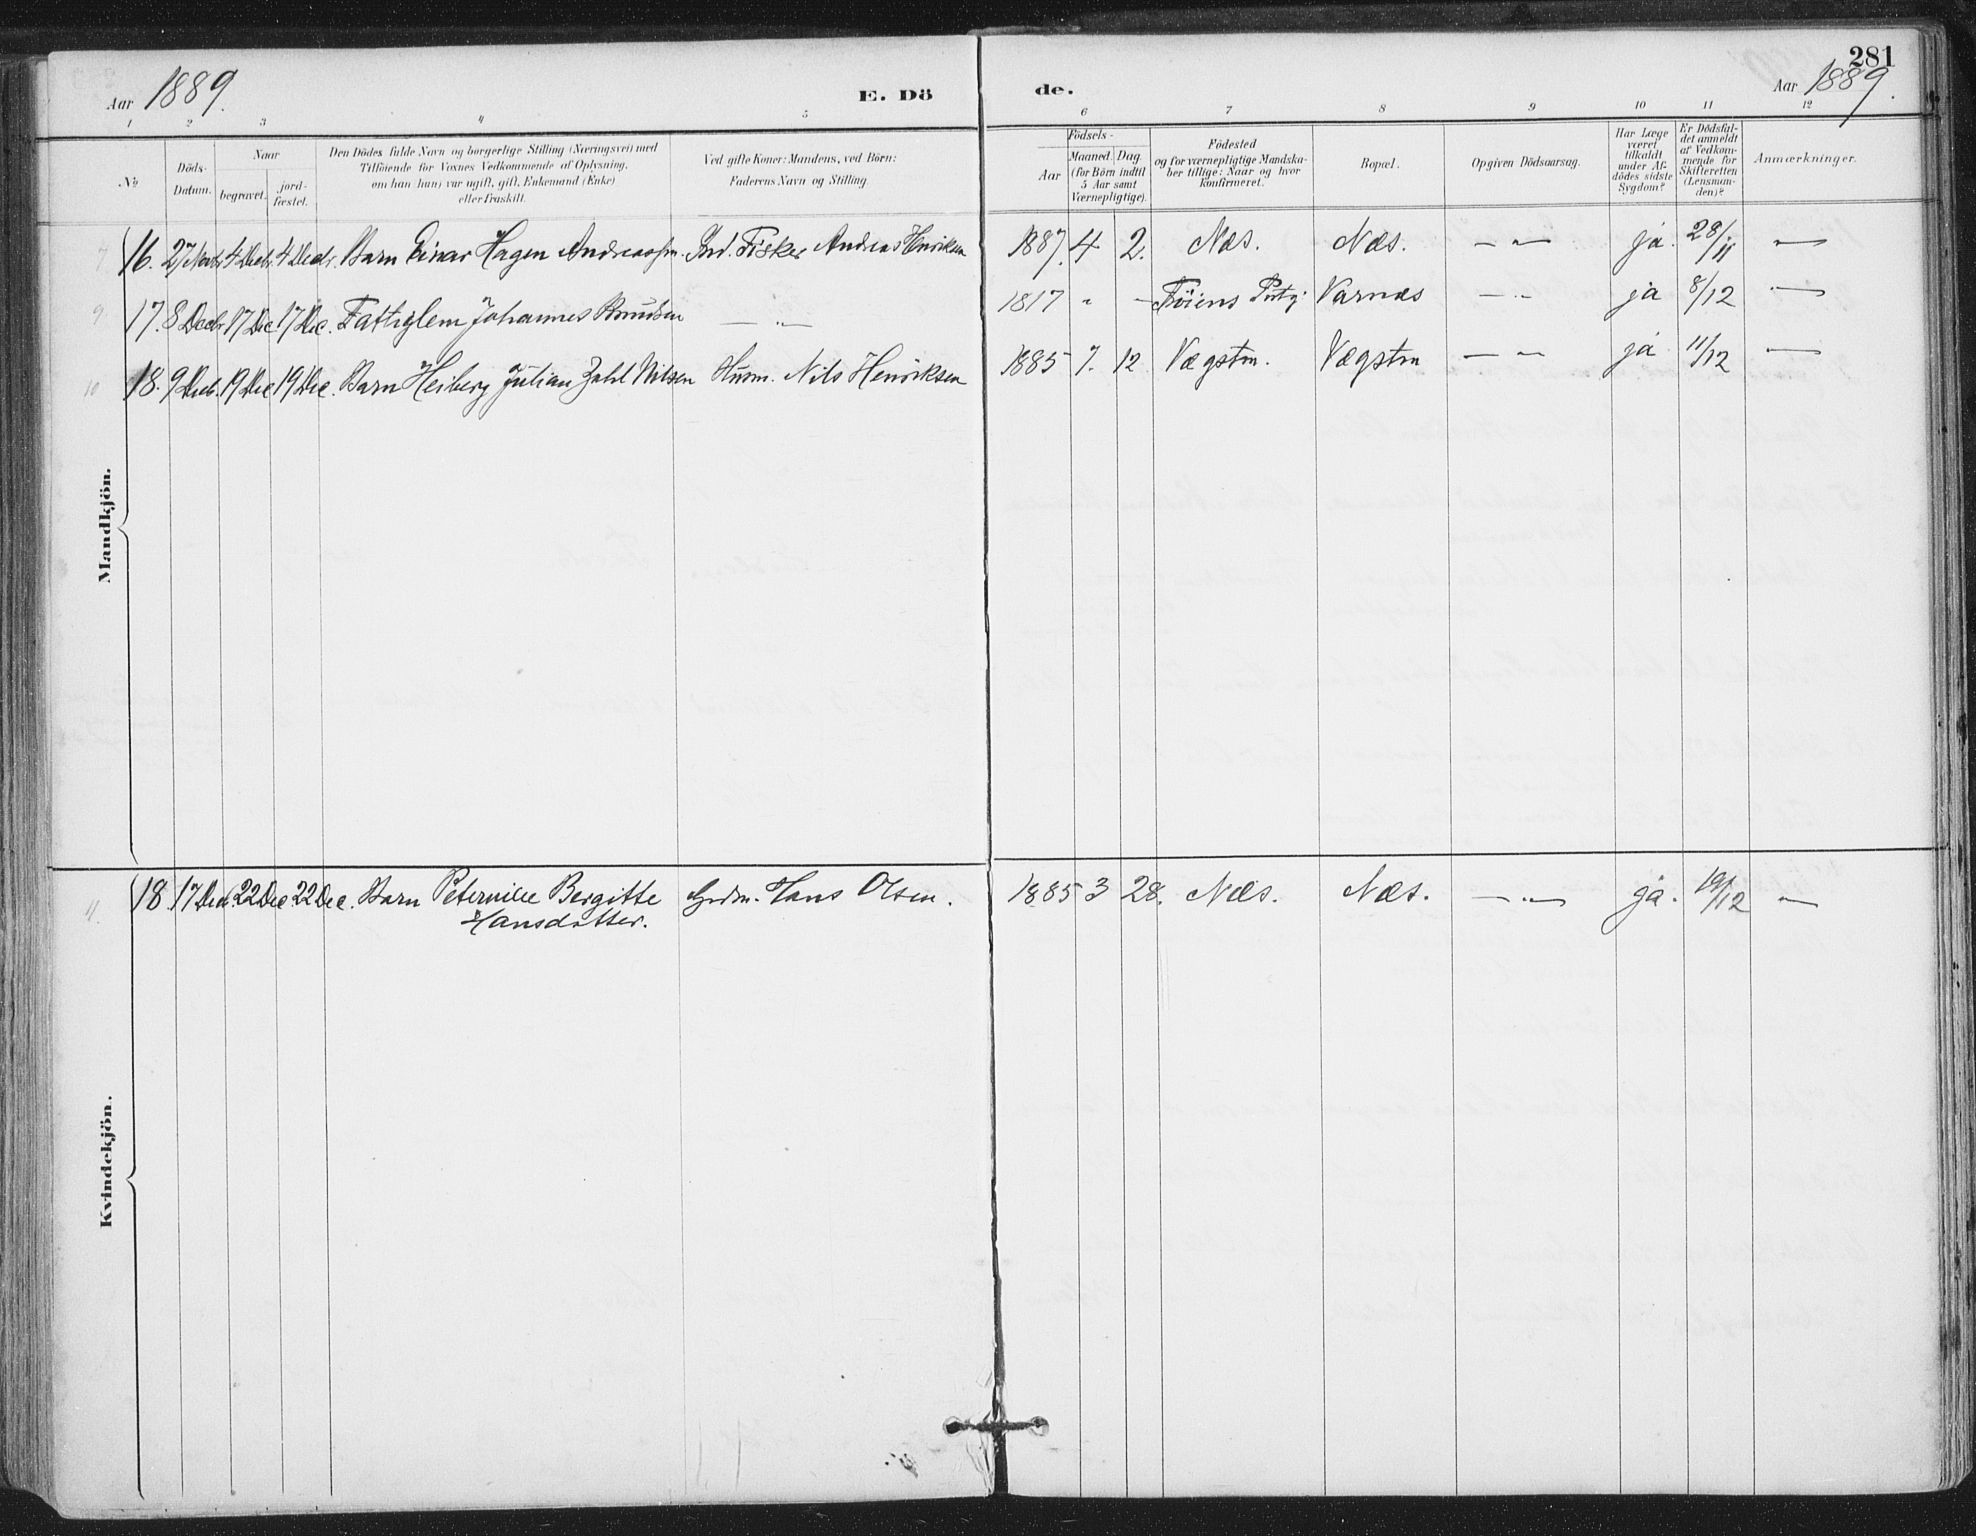 281
Aar 1889. E. Dö de. Aar 1889.
1 2 3 4 5 6 7 8 9 10 11 12
No
Döds-
Datum.
Naar
begravet. jord-
fæstet.
Den Dödes fulde Navn og borgerlige Stilling (Næringsvei) med
Tilföiende for Voxnes Vedkommende af Oplysning,
om han (hun) var ugift, gift, Enkemand (Enke)
eller fraskilt.
Ved gifte Koner: Mandens, ved Börn:
Faderens Navn og Stilling
Födsels-
Aar Maaned. Dag
(for Börn indtil
5 Aar samt
Værnepligtige).
Födested
og for værnepligtige Mandska-
ber tillige: Naar og hvor
konfirmeret.
Bopæl.
Opgiven Dödsaarsag.
Har Læge
været
tilkaldt
under Af-
dödes sidste
Sygdom?
Er Dödsfal-
det anmeldt
af Vedkom-
mende for
Skifteretten
(Lensman-
den)?
Anmærkninger.
Mandkjön.
7 16. 27 Novbr. 4 Decbr. 4 Decbr. Barn Einar Hagen Andreassen. Ind. Fisker Andreas Henriksen 1887. 4 2. Næs. Næs. — „ — ja. 28/11 —
9 17. 8 Decbr. 17 Dec 17 Dec. Fattiglem Johannes Knudsen — „ — 1817 - - Varnæs — „ — ja 8/12 —
10 18. 9 Decb. 19 Dec 19 Dec. Barn Heiberg Julian Zahl Nilsen Husm. Nils Henriksen 1885 7. 12 Vægstm. Vægstm — „ — ja 11/12 —
Kvindekjön.
11. 18. 17 Dec 22 Dec 22 Dec. Barn Petermile Bergitte Grdm. Hans Olsen. 1885 3 28. Næs. Næs. — „ — ja. 19/12 —
Hansdatter.